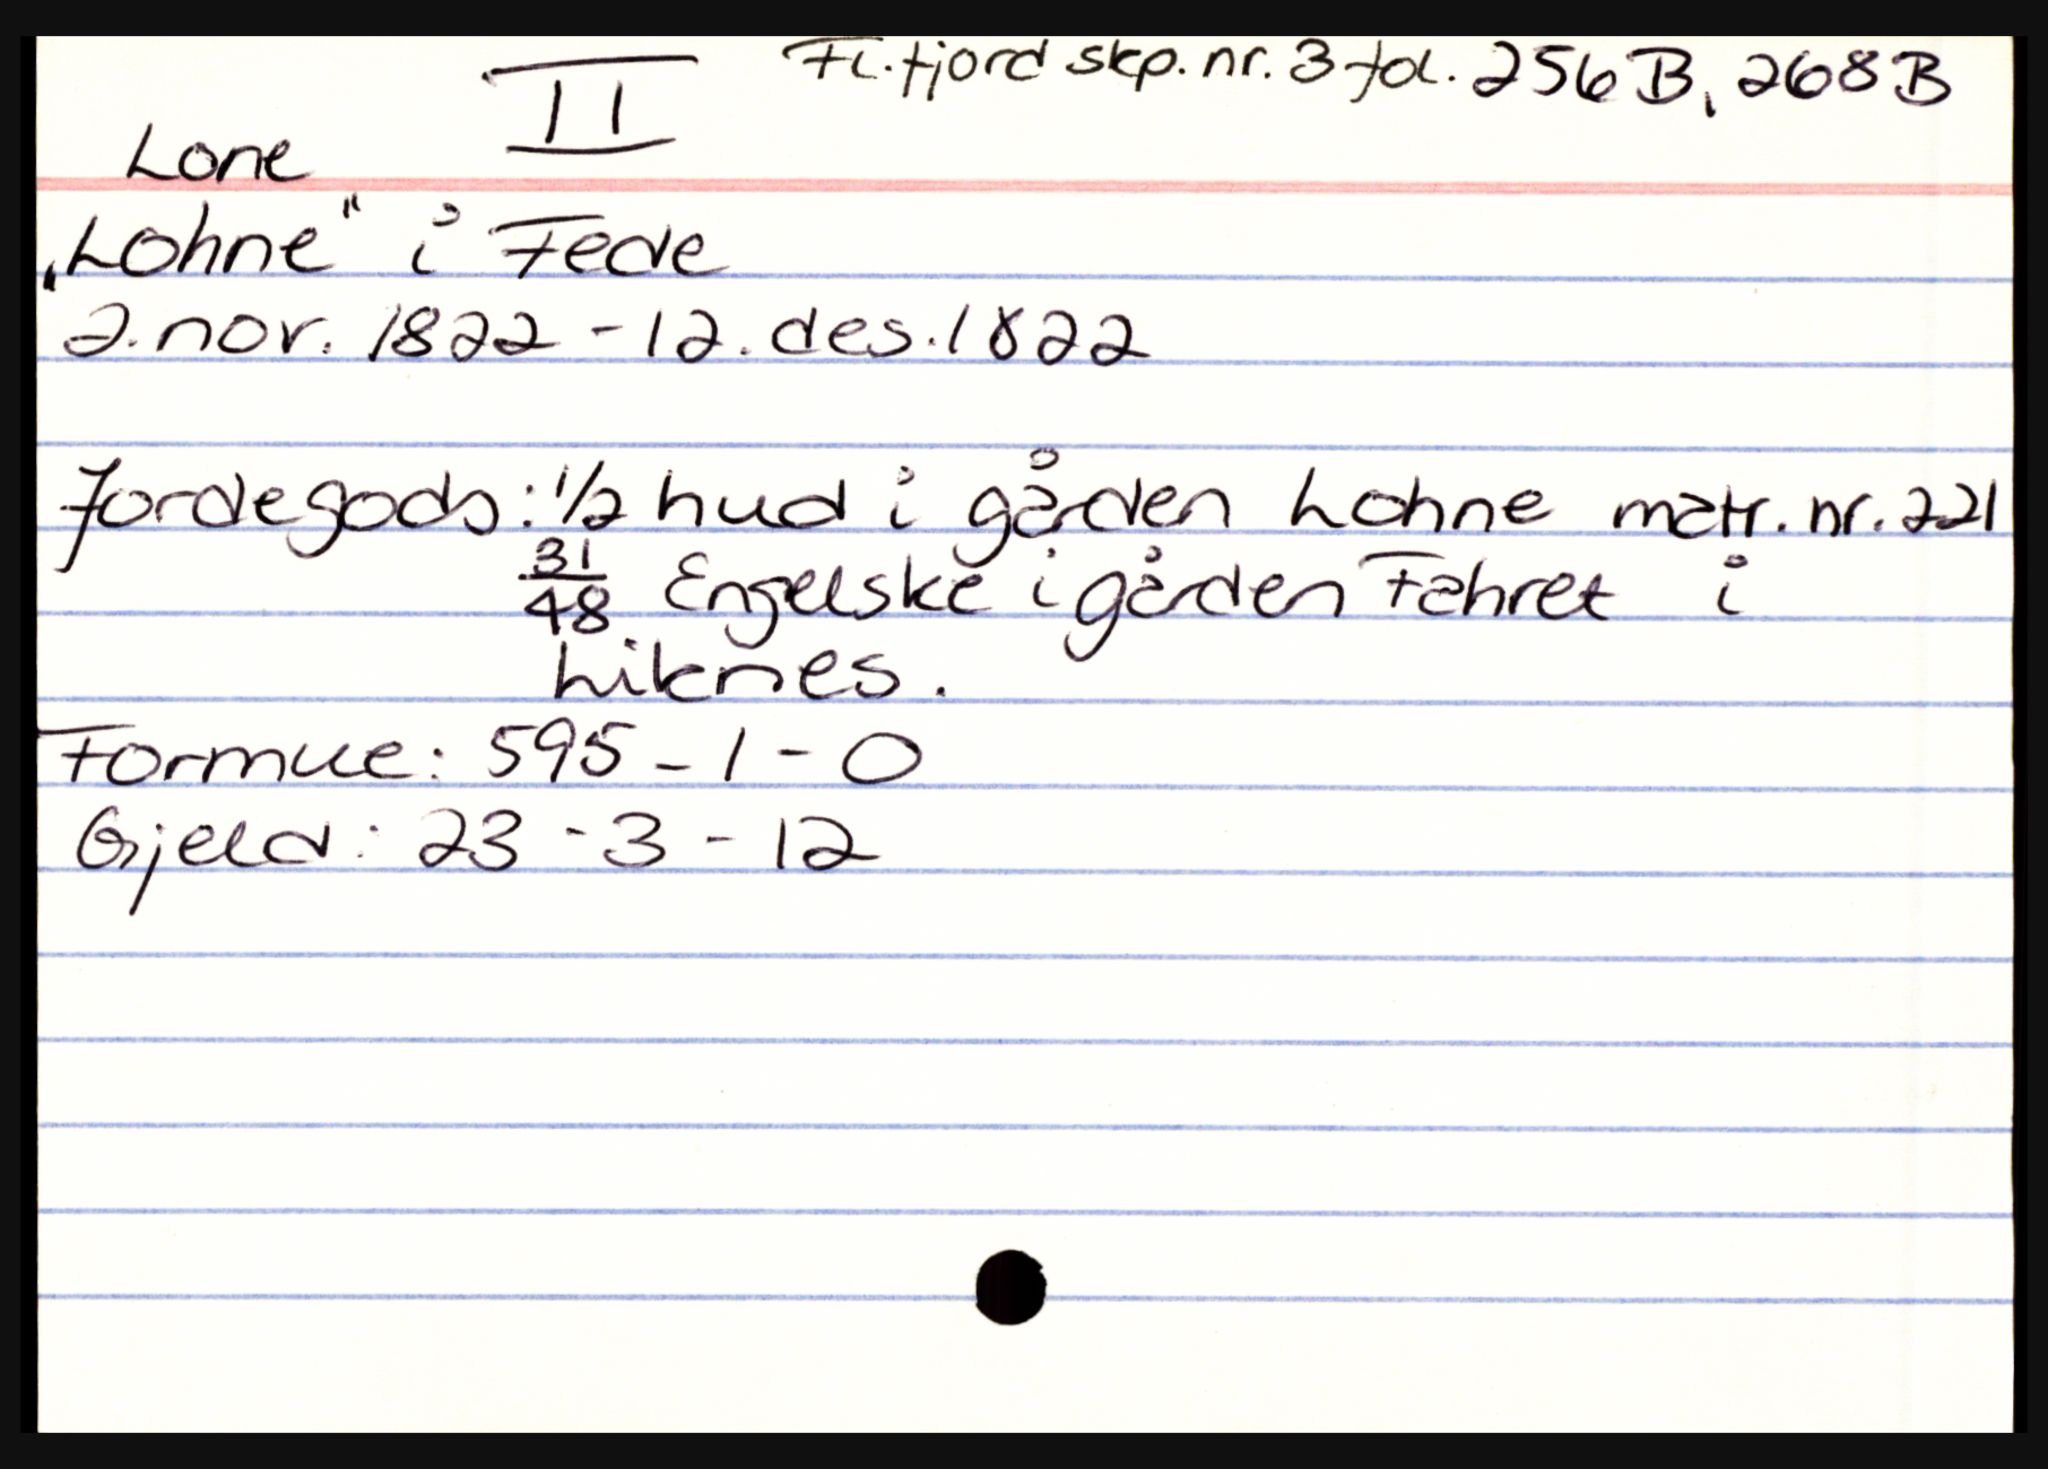 II Fl.fjord skp. nr. 3 fol. 256B, 268B
Lone
„Lohne" i Fede
2. nov. 1822 - 12. des. 1822
Jordegods: 1/2 hud i gården Lohne matr. nr. 221
31/48 Engelske i gården Fahret i
Liknes.
Formue: 595 - 1 - 0
Gjeld: 23 - 3 - 12